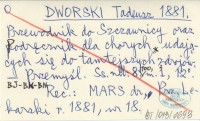 DWORSKI Tadeusz 1881.
Przewodnik do Szczawnicy oraz
Podręcznik dla chorych udają-
cych się do tamtejszych zdrojów.
Przemyśl. Ss. 1. 8°, 1,
BJ-BK-BN
Rec.: MARS dr., Prz. Le-
karski r. 1881, nr 18.